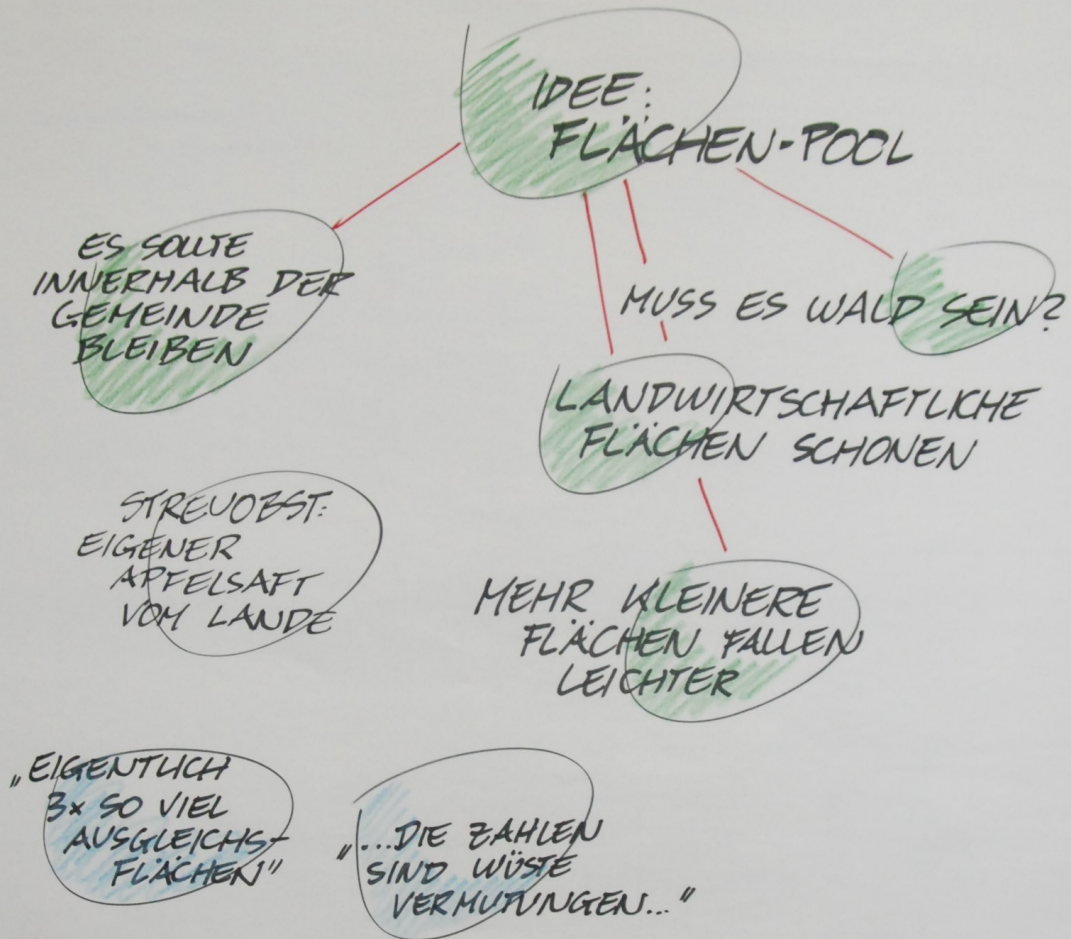 IDEE:
FLÄCHEN-POOL
ES SOLLTE
INNERHALB DER
GEMEINDE
BLEIBEN
MUSS ES WALD SEIN?
LANDWIRTSCHAFTLICHE
FLÄCHEN SCHONEN
STREUOBST:
EIGENER
APFELSAFT
VOM LANDE
MEHR KLEINERE
FLÄCHEN FALLEN
LEICHTER
„EIGENTLICH
3x SO VIEL
AUSGLEICHS-
FLÄCHEN"
"...DIE ZAHLEN
SIND WÜSTE
VERMUTUNGEN..."